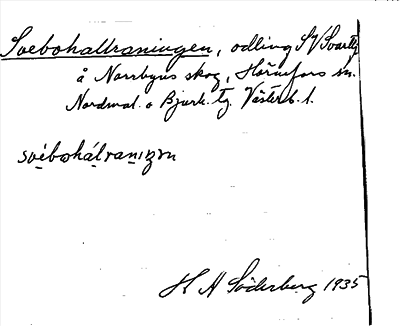 Svebohallraningen, odling SV Svarttj
å Norrbyns skog, Hörnefors sn.
Nordmal. o Bjurh. tg. Västerb. l.
svébohálranıŋen
H A Söderberg 1935